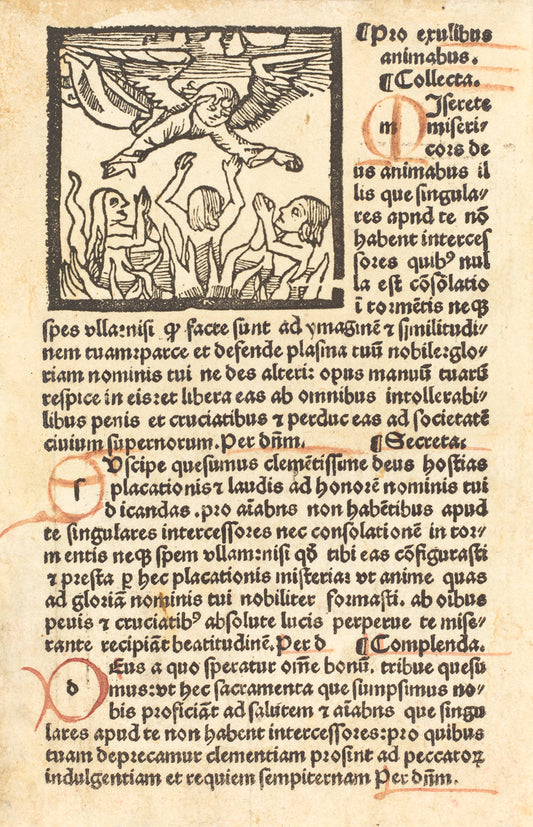 ¶Pro exulibus
animabus.
¶Collecta.
MIserete
m miseri-
cors de
us animabus il
lis que singula-
res apud te nō
habent interces
sores quibꝰ nul
la est cōsolatio
ī tormētis neqꝫ
spes vlla:nisi ꝙ facte sunt ad ymaginē ⁊ similitudi-
nem tuam:parce et defende plasma tuū nobile:glo-
riam nominis tui ne des alteri: opus manuū tuarū
respice in eis:et libera eas ab omnibus intollerabi-
libus penis et cruciatibus ⁊ perduc eas ad societatē
ciuium supernorum.Per dn̄m. ¶Secreta.
s Vscipe quesumus clemētissime deus hostias
placationis ⁊ laudis ad honorē nominis tui
dicandas.pro aīabns non habētibus apud
te singulares intercessores nec consolationē in tor-
mentis neqꝫ spem vllam:nisi qđ tibi eas cōfigurasti
⁊ presta ꝑ hec placationis misteria: vt anime quas
ad gloriam nominis tui nobiliter formasti. ab oībus
penis ⁊ cruciatibꝰ absolute lucis perpetue te mise-
rante recipiāt beatitudinē.Per d ¶Complenda.
d Eus a quo speratur om̄e bonū. tribue quesu
mus:vt hec sacramenta que sumpsimus no-
bis proficiāt ad salutem ⁊ aīabns que singu
lares apud te non habent intercessores:pro quibus
tuam deprecamur clementiam prosint ad peccatoꝝ
indulgentiam et requiem sempiternam Per dn̄m.